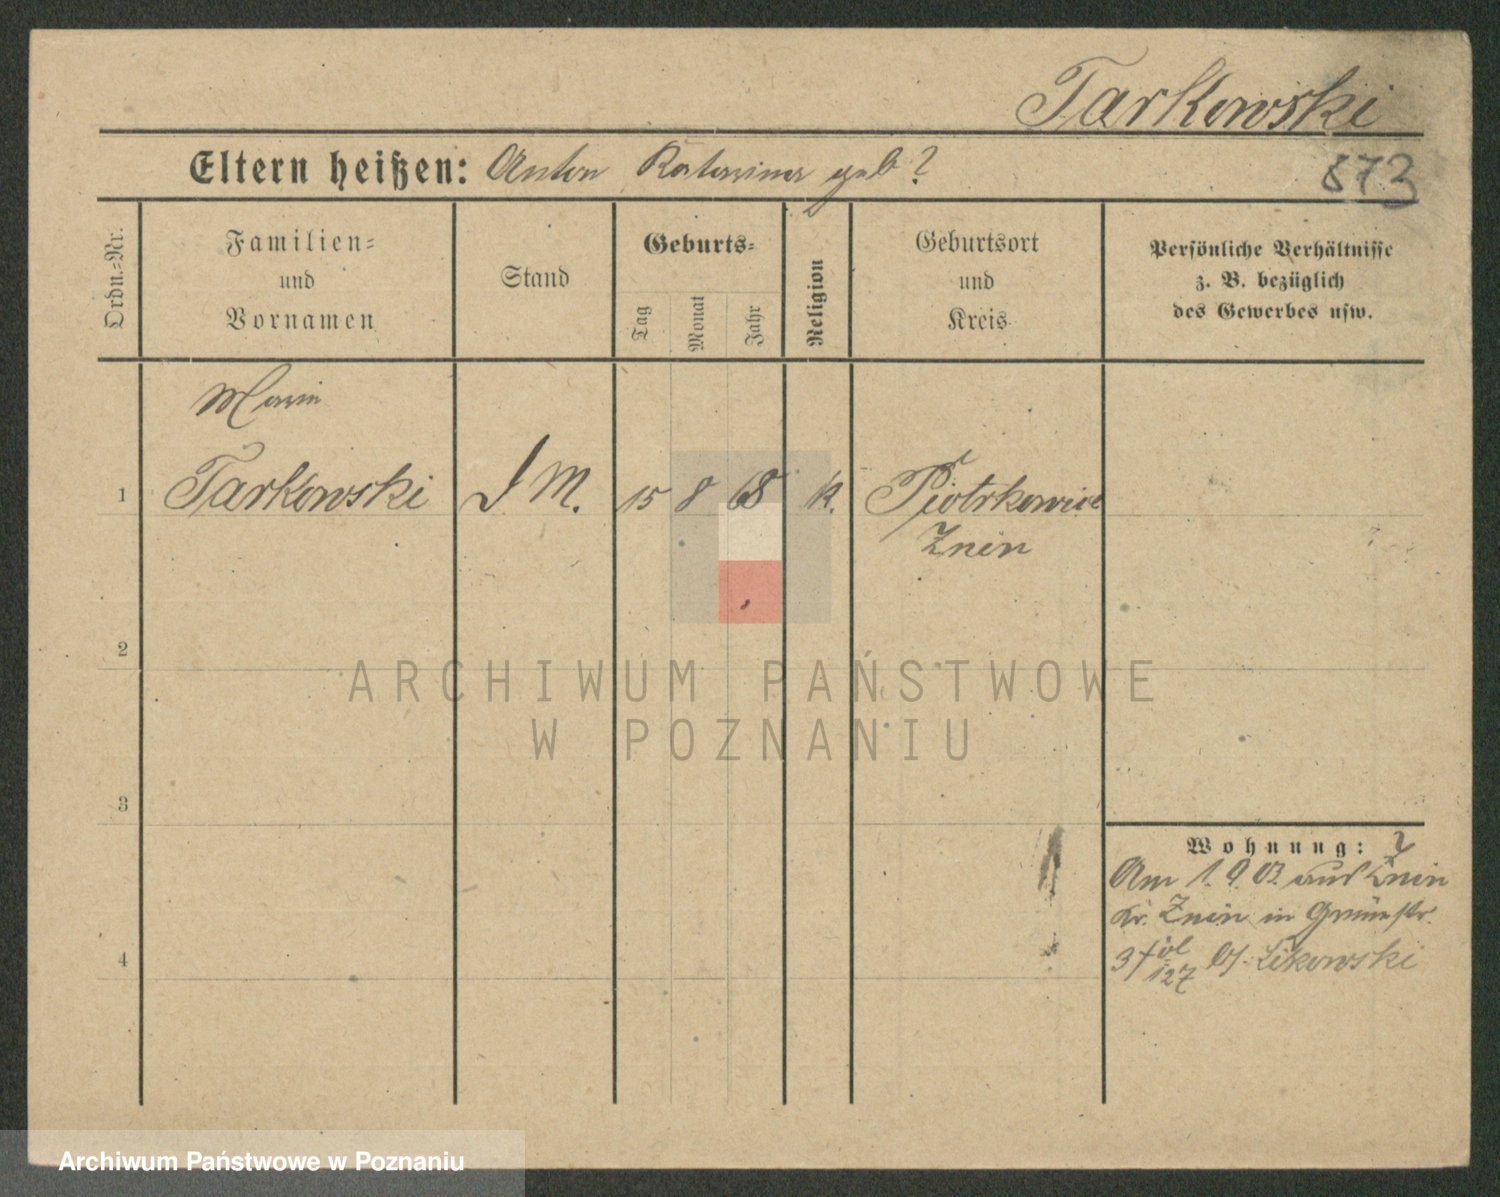 Tarkowski
Eltern heißen: Anton Katarina geb ?
873
Ordn.=Nr.
Familien=
und
Vornamen
Stand
Geburts=
Tag
Monat
Jahr
Religion
Geburtsort
und
Kreis
Persönliche Verhältnisse
z. B. bezüglich
des Gewerbes usw.
Marin
1 Tarkowski D M. 15 8 68 K. Piotrkowice
Znin
2
3
4
Wohnung: ?
Am 1. 9. 03. aus Znin
Kr. Znin in
3 127 Likowski
ARCHIWUM PAŃSTWOWE
W POZNANIU
Archiwum Państwowe w Poznaniu